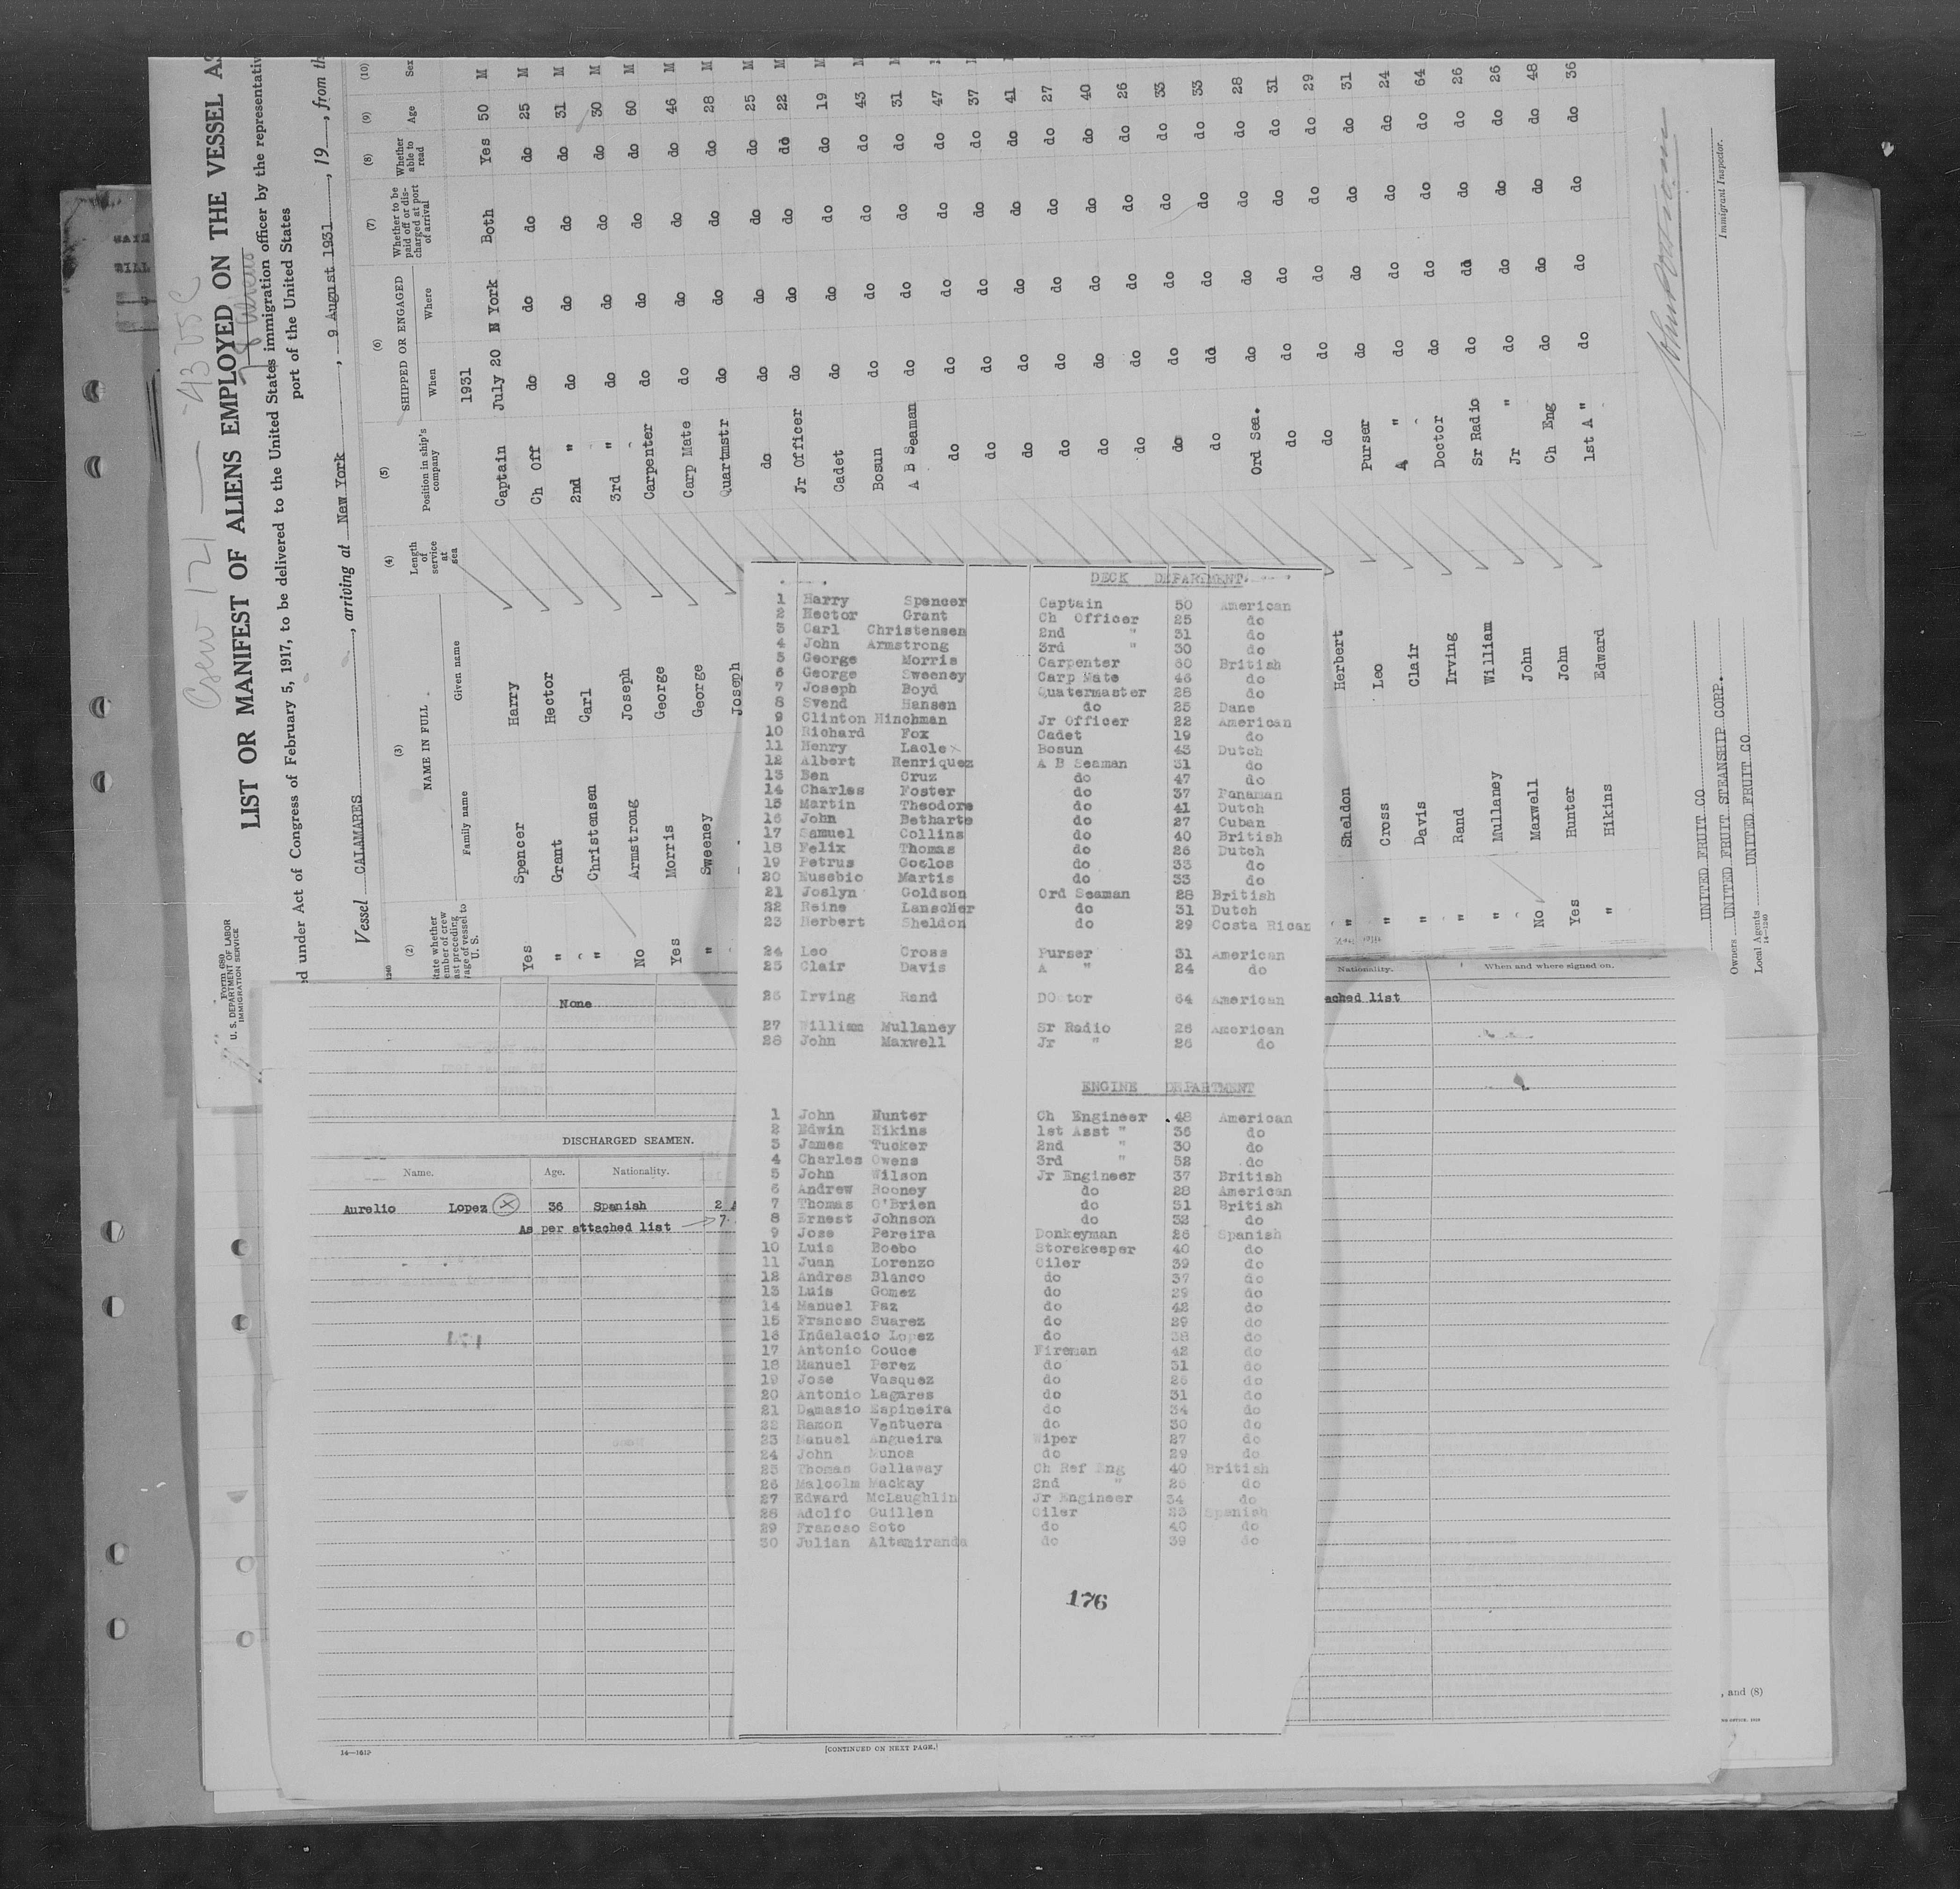 Form 680
U. S. DEPARTMENT OF LABOR
IMMIGRATION SERVICE
LIST OR MANIFEST OF ALIENS EMPLOYED ON THE VESSEL AS
under Act of Congress of February 5, 1917, to be delivered to the United States immigration officer by the representativ
port of the United States
Vessel CALAMARES, arriving at New York, 9 August 1931, 19, from th
(2) (3) (4) (5) (6) (7) (8) (9) (10)
NAME IN FULL
Family name Given name
Length of service at sea
Position in ship's company
SHIPPED OR ENGAGED
When Where
Whether to be paid off or discharged at port of arrival
Whether able to read
Age
Sex
1931
Yes Spencer Harry Captain July 20 N York Both Yes 50 M
" Grant Hector Ch Off do do do do 25 M
" Christensen Carl 2nd " do do do do 31 M
No Armstrong Joseph 3rd " do do do do 30 M
Yes Morris George Carpenter do do do do 60 M
" Sweeney George Carp Mate do do do do 46 M
Joseph Quartmstr do do do do 28 M
do do do do do 25 M
Jr Officer do do do do 22 M
Cadet do do do do 19 M
Bosun do do do do 43 M
A B Seaman do do do do 31 M
do do do do do 47
do do do do do 37
do do do do do 41
do do do do do 27
do do do do do 40
do do do do do 26
do do do do do 33
do do do do do 33
Ord Sea. do do do do 28
do do do do do 31
do do do do do 29
" Sheldon Herbert Purser do do do do 31
" Cross Leo A " do do do do 24
" Davis Clair Doctor do do do do 64
" Rand Irving Sr Radio do do do do 26
" Mullaney William Jr " do do do do 26
No Maxwell John Ch Eng do do do do 48
Yes Hunter John 1st A " do do do do 36
" Hikins Edward
Immigrant Inspector.
UNITED FRUIT CO
Owners UNITED FRUIT STEAMSHIP CORP.
Local Agents UNITED FRUIT CO
14-1240
DECK DEPARTMENT.
1 Harry Spencer Captain 50 American
2 Hector Grant Ch Officer 25 do
3 Carl Christensen 2nd " 31 do
4 John Armstrong 3rd " 30 do
5 George Morris Carpenter 60 British
6 George Sweeney Carp Mate 46 do
7 Joseph Boyd Quatermaster 28 do
8 Svend Hansen do 25 Dane
9 Clinton Hinchman Jr Officer 22 American
10 Richard Fox Cadet 19 do
11 Henry Lacle Bosun 43 Dutch
12 Albert Henriquez A B Seaman 31 do
13 Ben Cruz do 47 do
14 Charles Foster do 37 Panaman
15 Martin Theodore do 41 Dutch
16 John Betharte do 27 Cuban
17 Samuel Collins do 40 British
18 Felix Thomas do 26 Dutch
19 Petrus Goelos do 33 do
20 Eusebio Martis do 33 do
21 Joslyn Goldson Ord Seaman 28 British
22 Reine Lanscher do 31 Dutch
23 Herbert Sheldon do 29 Costa Rican
24 Leo Cross Purser 31 American
25 Clair Davis A " 24 do
26 Irving Rand DOctor 64 American
27 William Mullaney Sr Radio 26 American
28 John Maxwell Jr " 26 do
ENGINE DEPARTMENT
1 John Hunter Ch Engineer 48 American
2 Edwin Hikins 1st Asst " 36 do
3 James Tucker 2nd " 30 do
4 Charles Owens 3rd " 52 do
5 John Wilson Jr Engineer 37 British
6 Andrew Rooney do 28 American
7 Thomas O'Brien do 31 British
8 Ernest Johnson do 32 do
9 Jose Pereira Donkeyman 26 Spanish
10 Luis Boebo Storekeeper 40 do
11 Juan Lorenzo Oiler 39 do
12 Andres Blanco do 37 do
13 Luis Gomez do 29 do
14 Manuel Paz do 42 do
15 Francso Suarez do 29 do
16 Indalacio Lopez do 38 do
17 Antonio Couce Fireman 42 do
18 Manuel Perez do 31 do
19 Jose Vasquez do 26 do
20 Antonio Lagares do 31 do
21 Damasio Espineira do 34 do
22 Ramon Ventuera do 30 do
23 Manuel Angueira Wiper 27 do
24 John Munoa do 29 do
25 Thomas Gallaway Ch Ref Eng 40 British
26 Malcolm Mackay 2nd " 26 do
27 Edward McLaughlin Jr Engineer 34 do
28 Adolfo Guillen Oiler 23 Spanish
29 Francso Soto do 40 do
30 Julian Altamiranda do 39 do
176
None
Nationality. When and where signed on.
ached list
DISCHARGED SEAMEN.
Name. Age. Nationality.
Aurelio Lopez 36 Spanish 2 A
As per attached list 7
14—1613
[CONTINUED ON NEXT PAGE.]
, and (8)